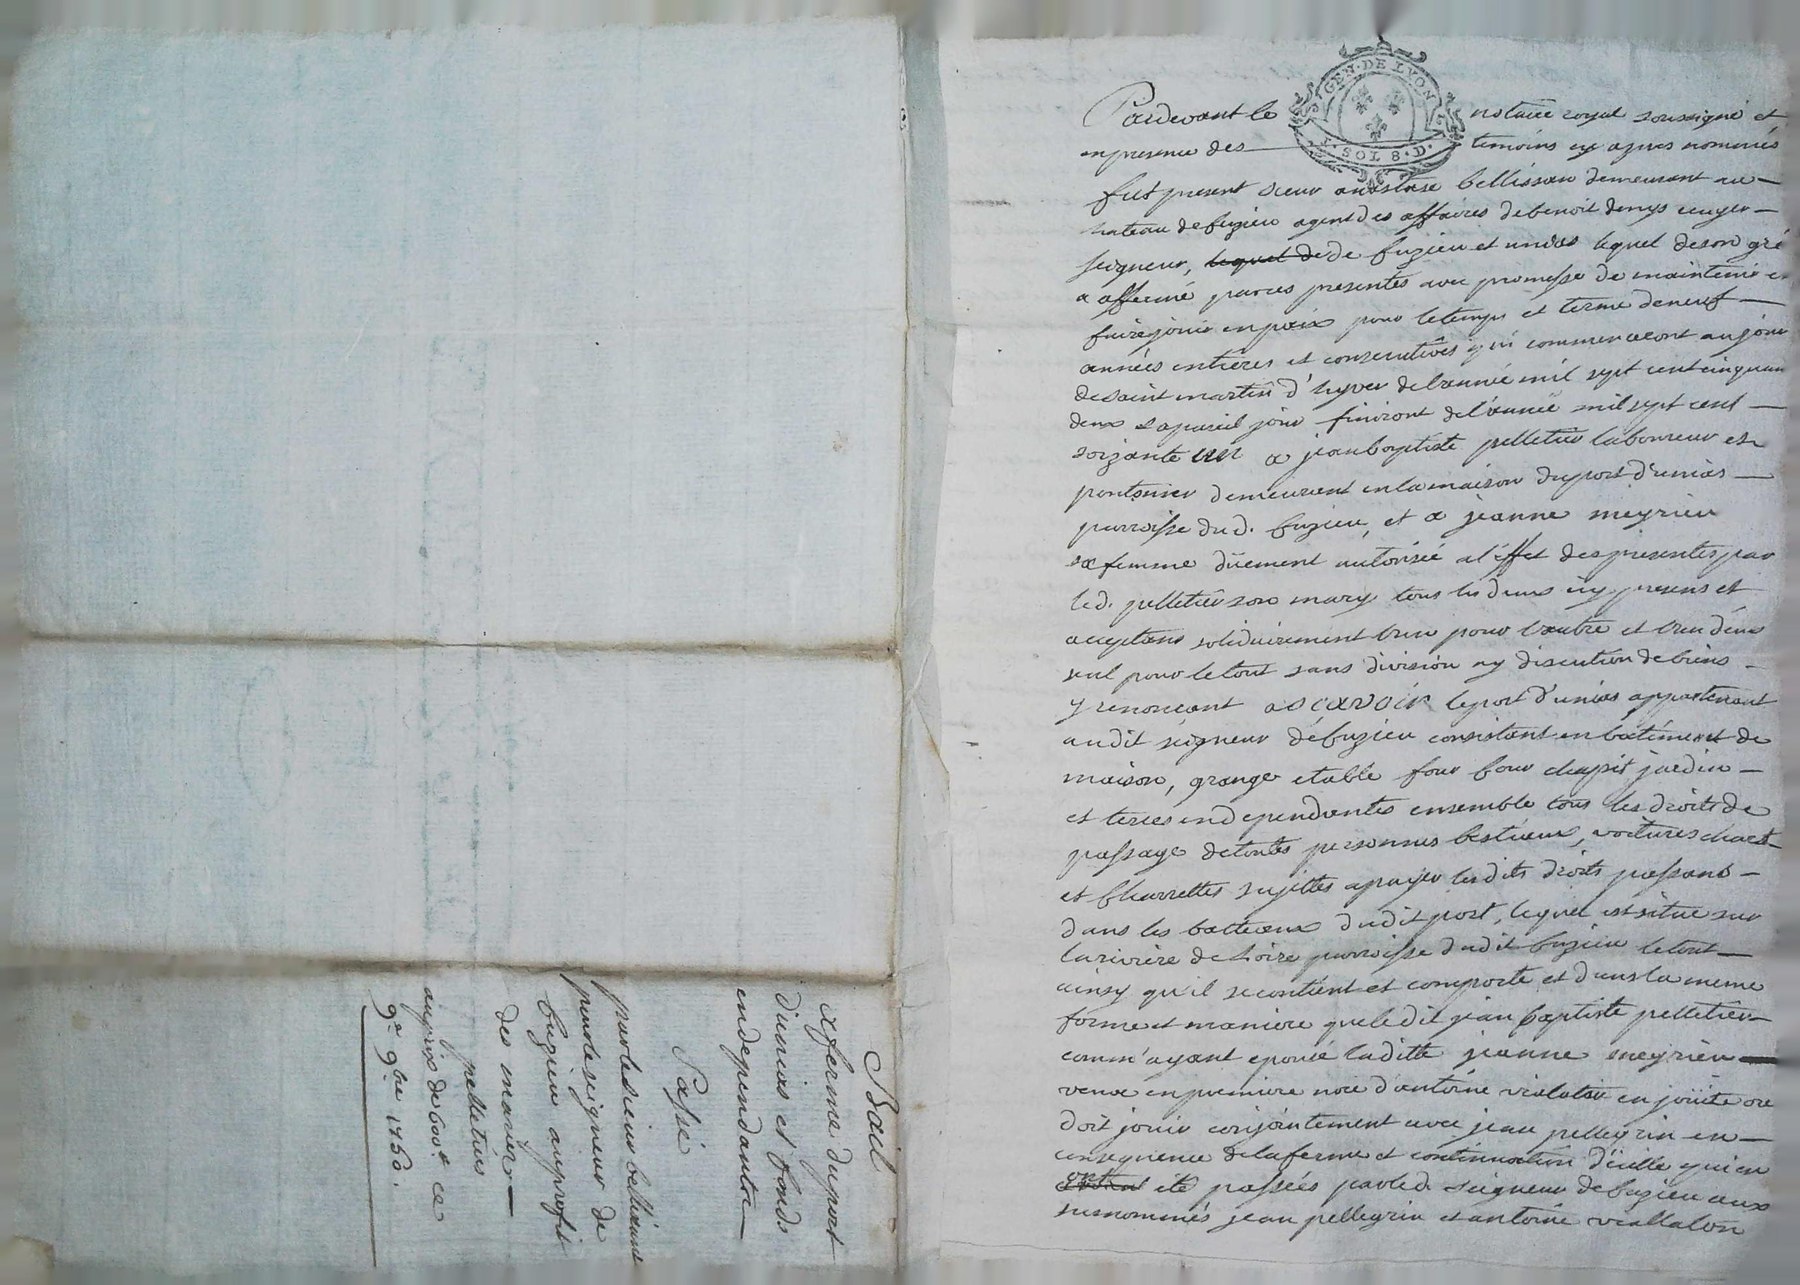 Bail
a ferme du port
d'unias et fonds
endependants
Passé
par le sieur bellissant
pour le seigneur de
fuzieu au profit
des mariés
pelletiers
au prix de 600# ce
9e 9bre 1750.
GEN · DE LYON
1 · SOL 8 · D ·
Pardevant le notaire royal soussigné et
en presence des temoins cy apres nommés
fut present sieur anastase bellissan demeurant au
chateau de fuzieu agent des affaires de benoit denys ecuyer
seigneur, lequel de de fuzieu et unias lequel de son gré
a affermé par ces presentes avec promesse de maintenir et
faire jouir en paix pour le temps et terme de neuf
années entieres et consecutives qui commenceront au jour
de saint martin d'hyver de l'année mil sept cent cinquante
deux & a pareil jour finiront de l'année mil sept cent
soixante un a jean baptiste pelletier laboureur et
pontonier demeurant en la maison du port d'unias
parroisse du d. fuzieu, et a jeanne meyrieu
sa femme düement autorisée a l'effet des presentes par
led. pelletier son mary tous les deux icy presens et
acceptans solidairement l'un pour l'autre et l'un d'eux
seul pour le tout sans division ny discution de biens
y renonceant a scavoir le port d'unias appartenant
audit seigneur de fuzieu consistant en batiment de
maison, grange etable four four chapit jardin
et terres endependantes ensemble tous les droits de
passage de toutes personnes bestiaux, voitures chars
et charrettes sujettes a payer lesdits droits passant
dans les batteaux dudit port, lequel est situe sur
la riviere de Loire parroisse dudit fuzieu le tout
ainsy qu'il se contient et comporte et dans la meme
forme et maniere que ledit jean baptiste pelletier
comm'ayant epousé ladite jeanne meyrieu
veuve en premiere noce d'antoine viallaton en joüit ou
doit jouir conjointement avec jean pellegrin en
consequence de la ferme et continuation d'icelle qui en
ont été passées par led. seigneur de fuzieu aux
susnommés jean pellegrin et antoine viallaton